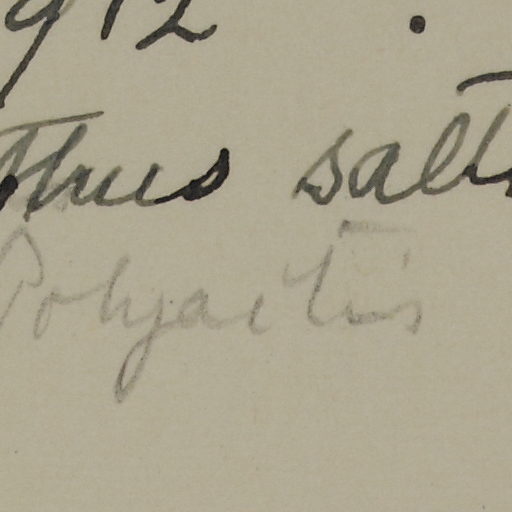 912 .
thus salt
Polyactis